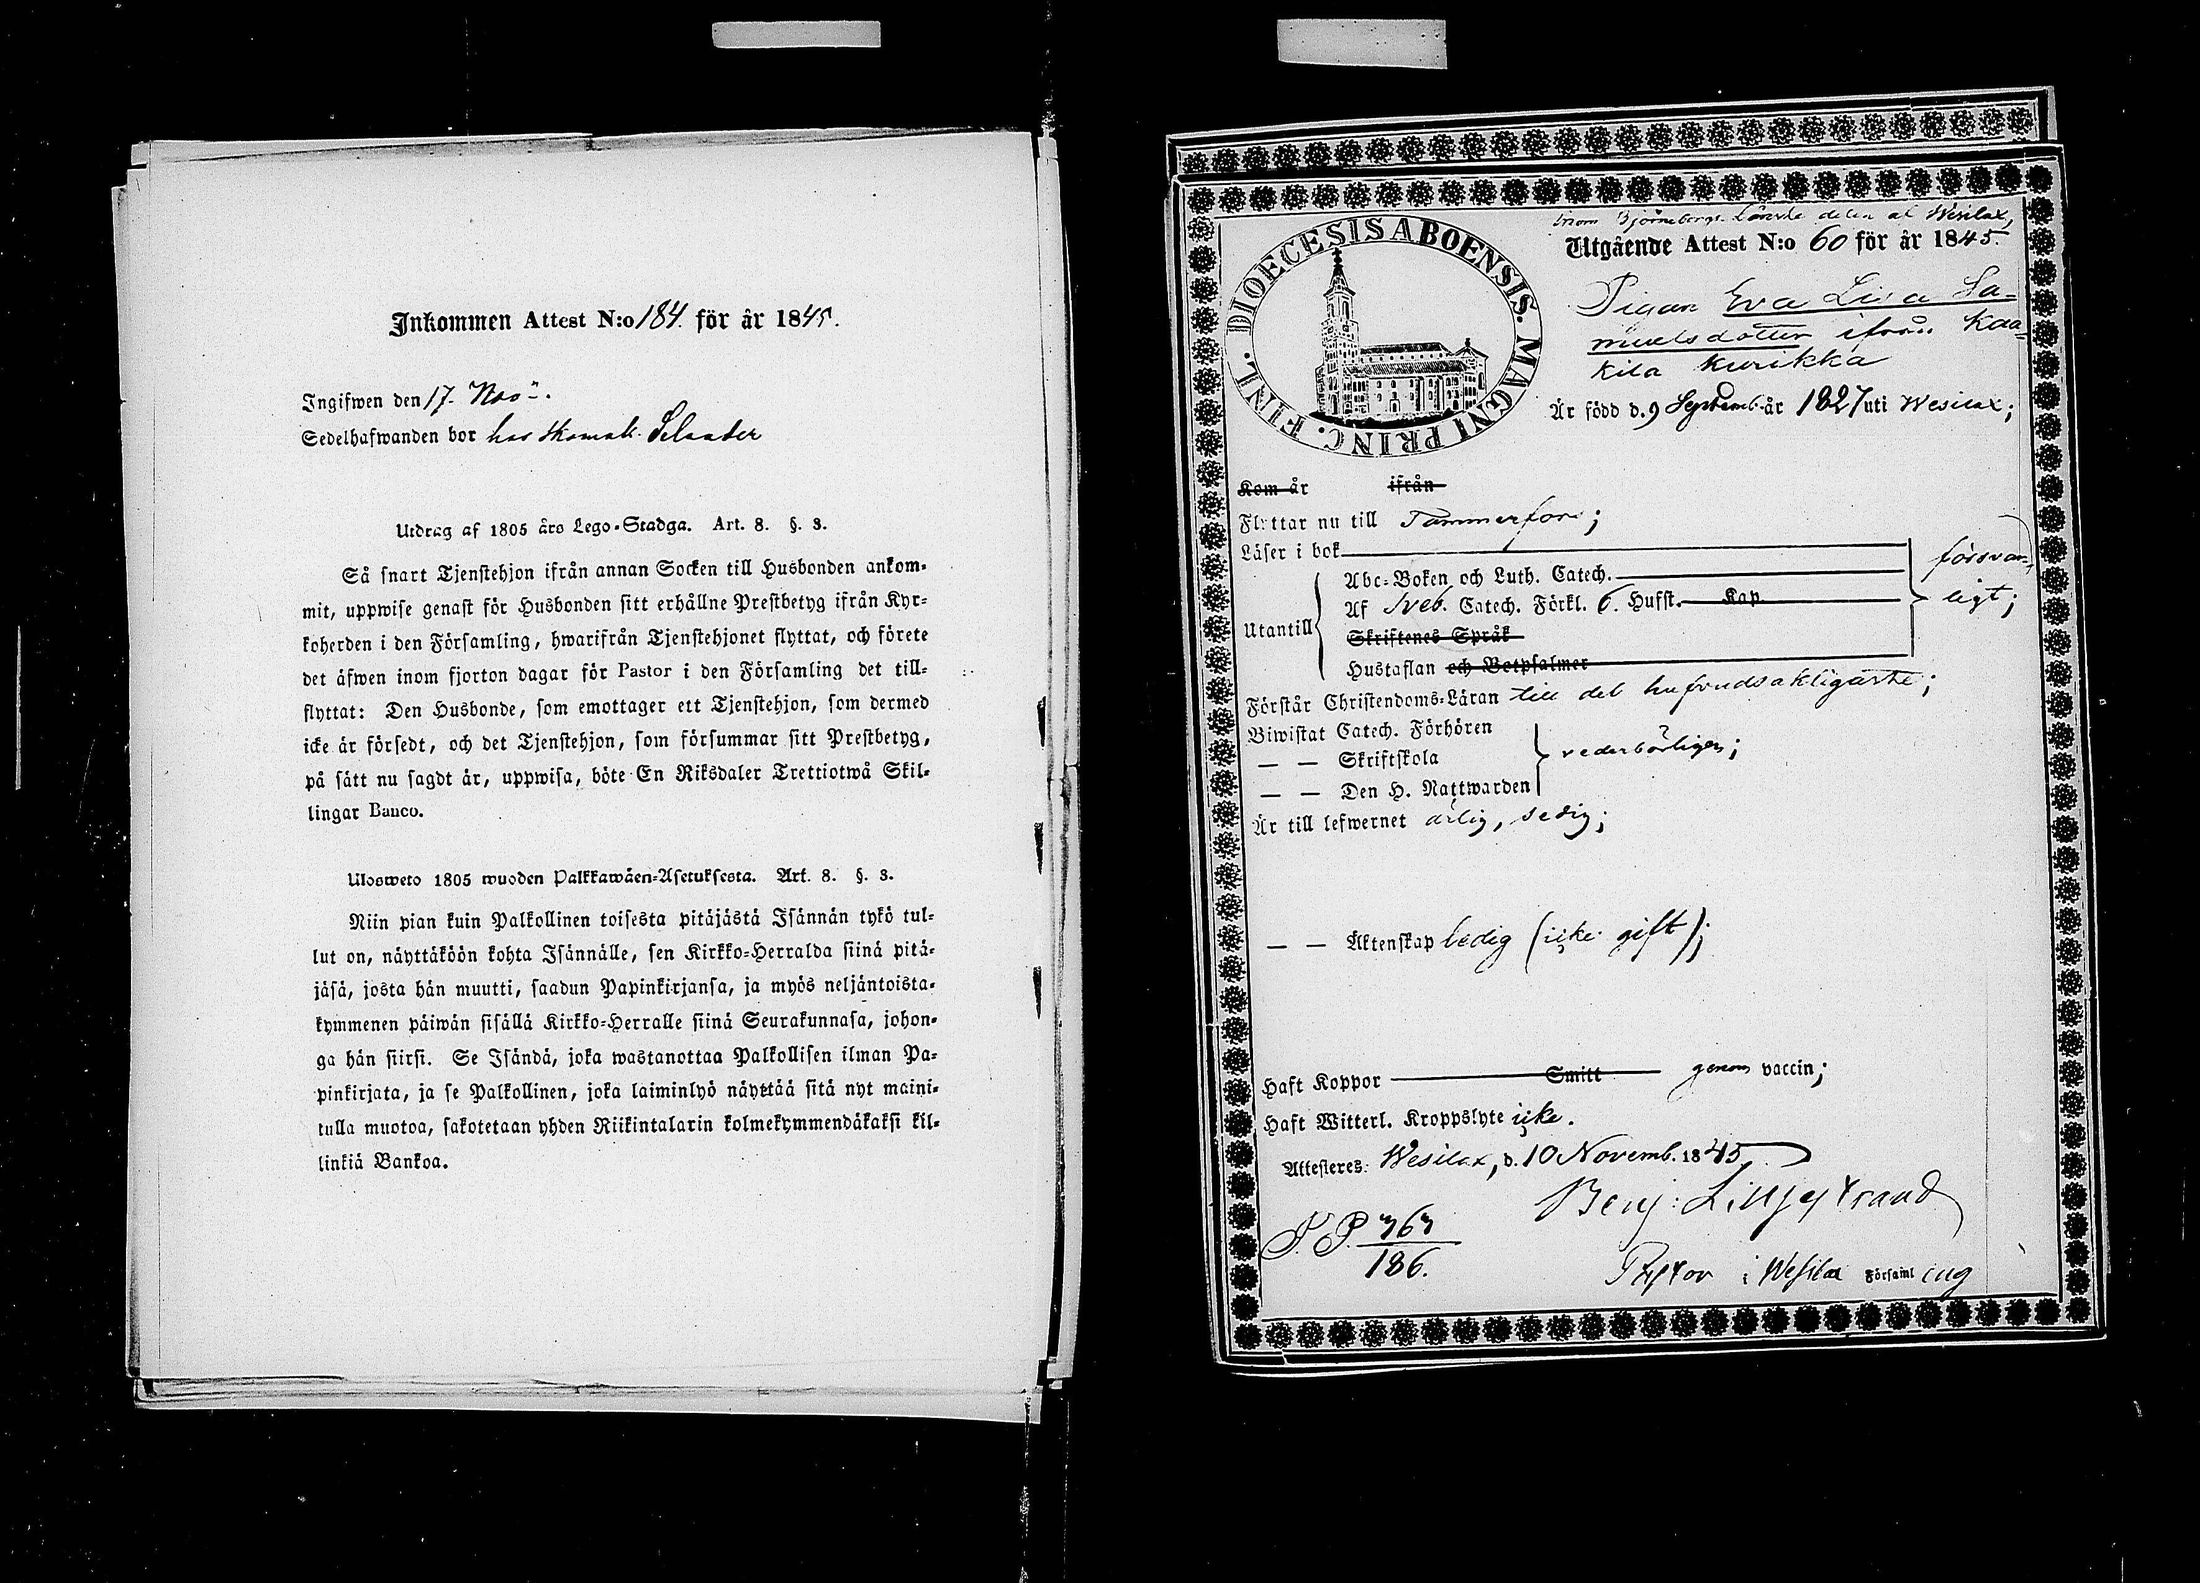 Inkommen Attest N:o 184. för år 1845.
Ingifwen den 17. Nov.
Sedelhafwanden bor hos Skomak. Selander
Utdrag af 1805 års Lego-Stadga. Art. 8. §. 3.
Så snart Tjenstehjon ifrån annan Socken till Husbonden ankom-
mit, uppwise genast för Husbonden sitt erhållne Prestbetyg ifrån Kyr-
koherden i den Församling, hwarifrån Tjenstehjonet flyttat, och förete
det äfwen inom fjorton dagar för Pastor i den Församling det till-
flyttat: Den Husbonde, som emottager ett Tjenstehjon, som dermed
icke är försedt, och det Tjenstehjon, som försummar sitt Prestbetyg,
på sätt nu sagdt är, uppwisa, böte En Riksdaler Trettiotwå Skil-
lingar Banco.
Ulosweto 1805 wuoden Palkkawäen-Asetuksesta. Art. 8. §. 3.
Niin pian kuin Palkollinen toisesta pitäjästä Isännän tykö tul-
lut on, näyttäköön kohta Isännälle, sen Kirkko-Herralda siinä pitä-
jäsä, josta hän muutti, saadun Papinkirjansa, ja myös neljäntoista-
kymmenen päiwän sisällä Kirkko-Herralle siinä Seurakunnasa, johon-
ga hän siirsi. Se Isändä, joka wastanottaa Palkollisen ilman Pa-
pinkirjata, ja se Palkollinen, joka laiminlyö näyttää sitä nyt maini-
tulla muotoa, sakotetaan yhden Riikintalarin kolmekymmendäkaksi kil-
linkiä Bankoa.
inom Björneborgs Länska delen af Wesilax,
Utgående Attest N:o 60 för år 1845.
DIOECESIS ABOENSIS. MAGNI PRINC. FINL.
Pigan Eva Lisa Sa-
muelsdotter ifrån Kaa-
kila Kurikka
Är född d. 9 Septemb. år 1827 uti Wesilax;
Kom år ifrån
Flyttar nu till Tammerfors;
Läser i bok
Abc-Boken och Luth. Catech.
försvar-
Af Sveb. Catech. Förkl. 6. Hufst. Kap.
ligt;
Utantill
Skriftenes Språk
Hustaflan och Botpsalmer
Förstår Christendoms-Läran till det hufvudsakligaste;
Biwistat Catech. Förhören
— — Skriftskola
vederbörligen;
— — Den H. Nattwarden
Är till lefwernet ärlig, sedig;
— — Äktenskap ledig (icke gift);
Haft Koppor Smitt genom vaccin;
Haft Witterl. Kroppslyte icke.
Attesteres: Wesilax, d. 10 Novemb. 1845
Benj: Lilljestrand
767
186.
Pastor i Wesilax Församl ing